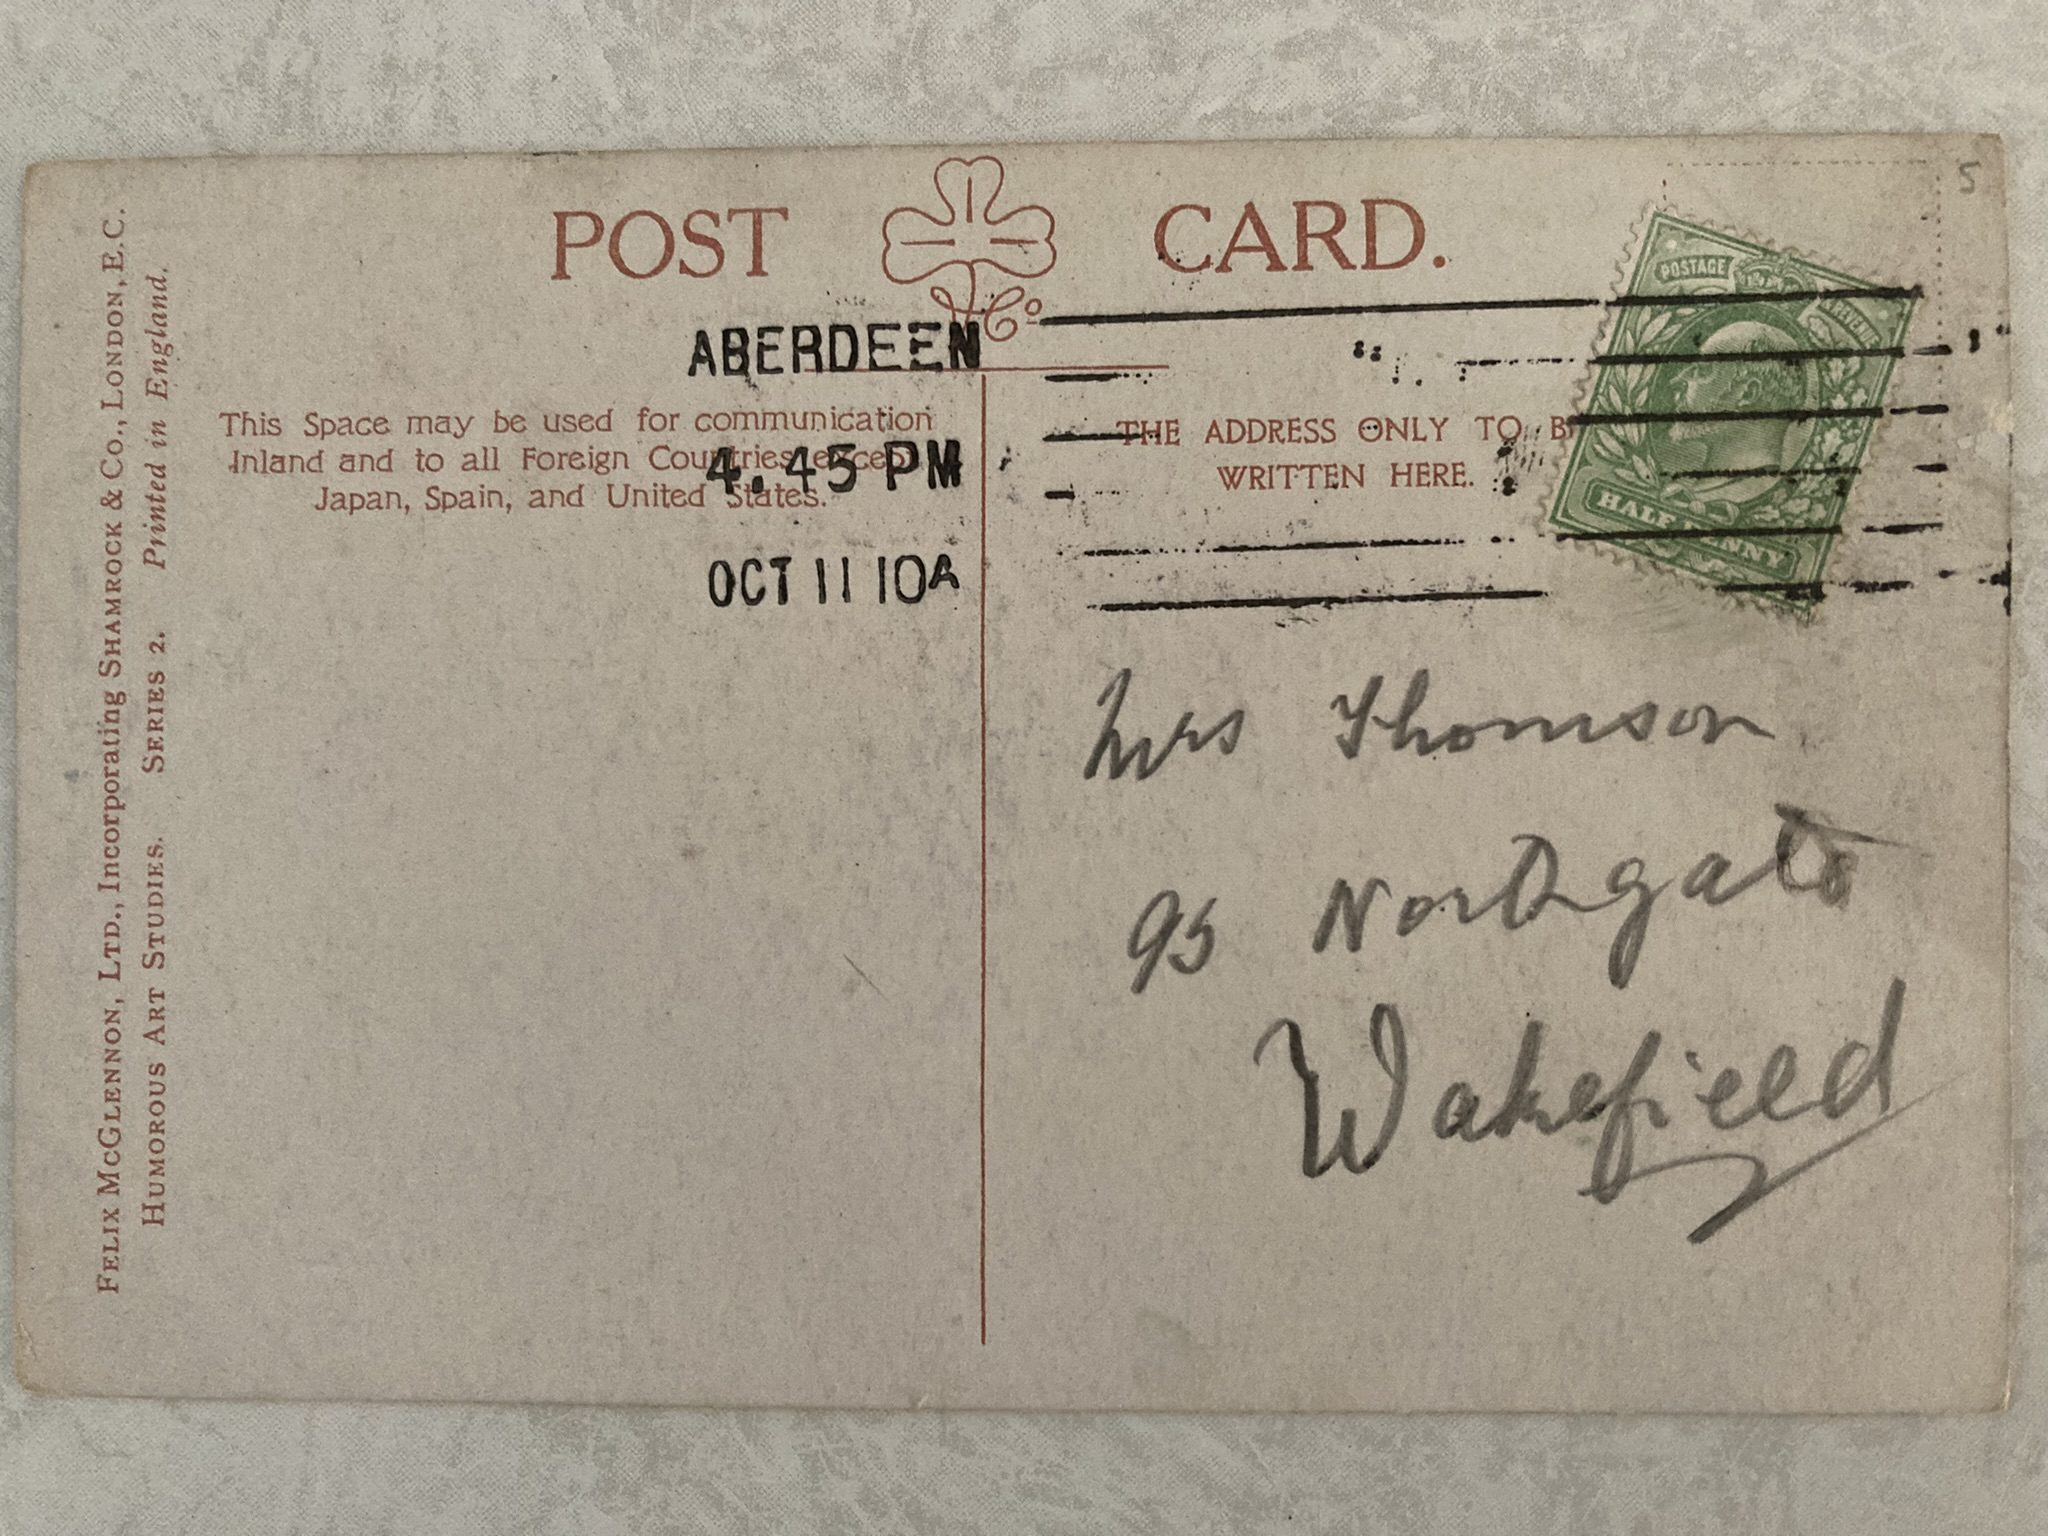 FELIX MCGLENNON, LTD., Incorporating SHAMROCK & CO., LONDON, E.C.
HUMOROUS ART STUDIES. SERIES 2. Printed in England.
POST CARD.
& Co
ABERDEEN
4.45 PM
OCT 11 10A
This Space may be used for communication
Inland and to all Foreign Countries except
Japan, Spain, and United States.
THE ADDRESS ONLY TO B
WRITTEN HERE.
POSTAGE
REVENUE
HALF PENNY
5
Mrs Thomson
95 Northgate
Wakefield